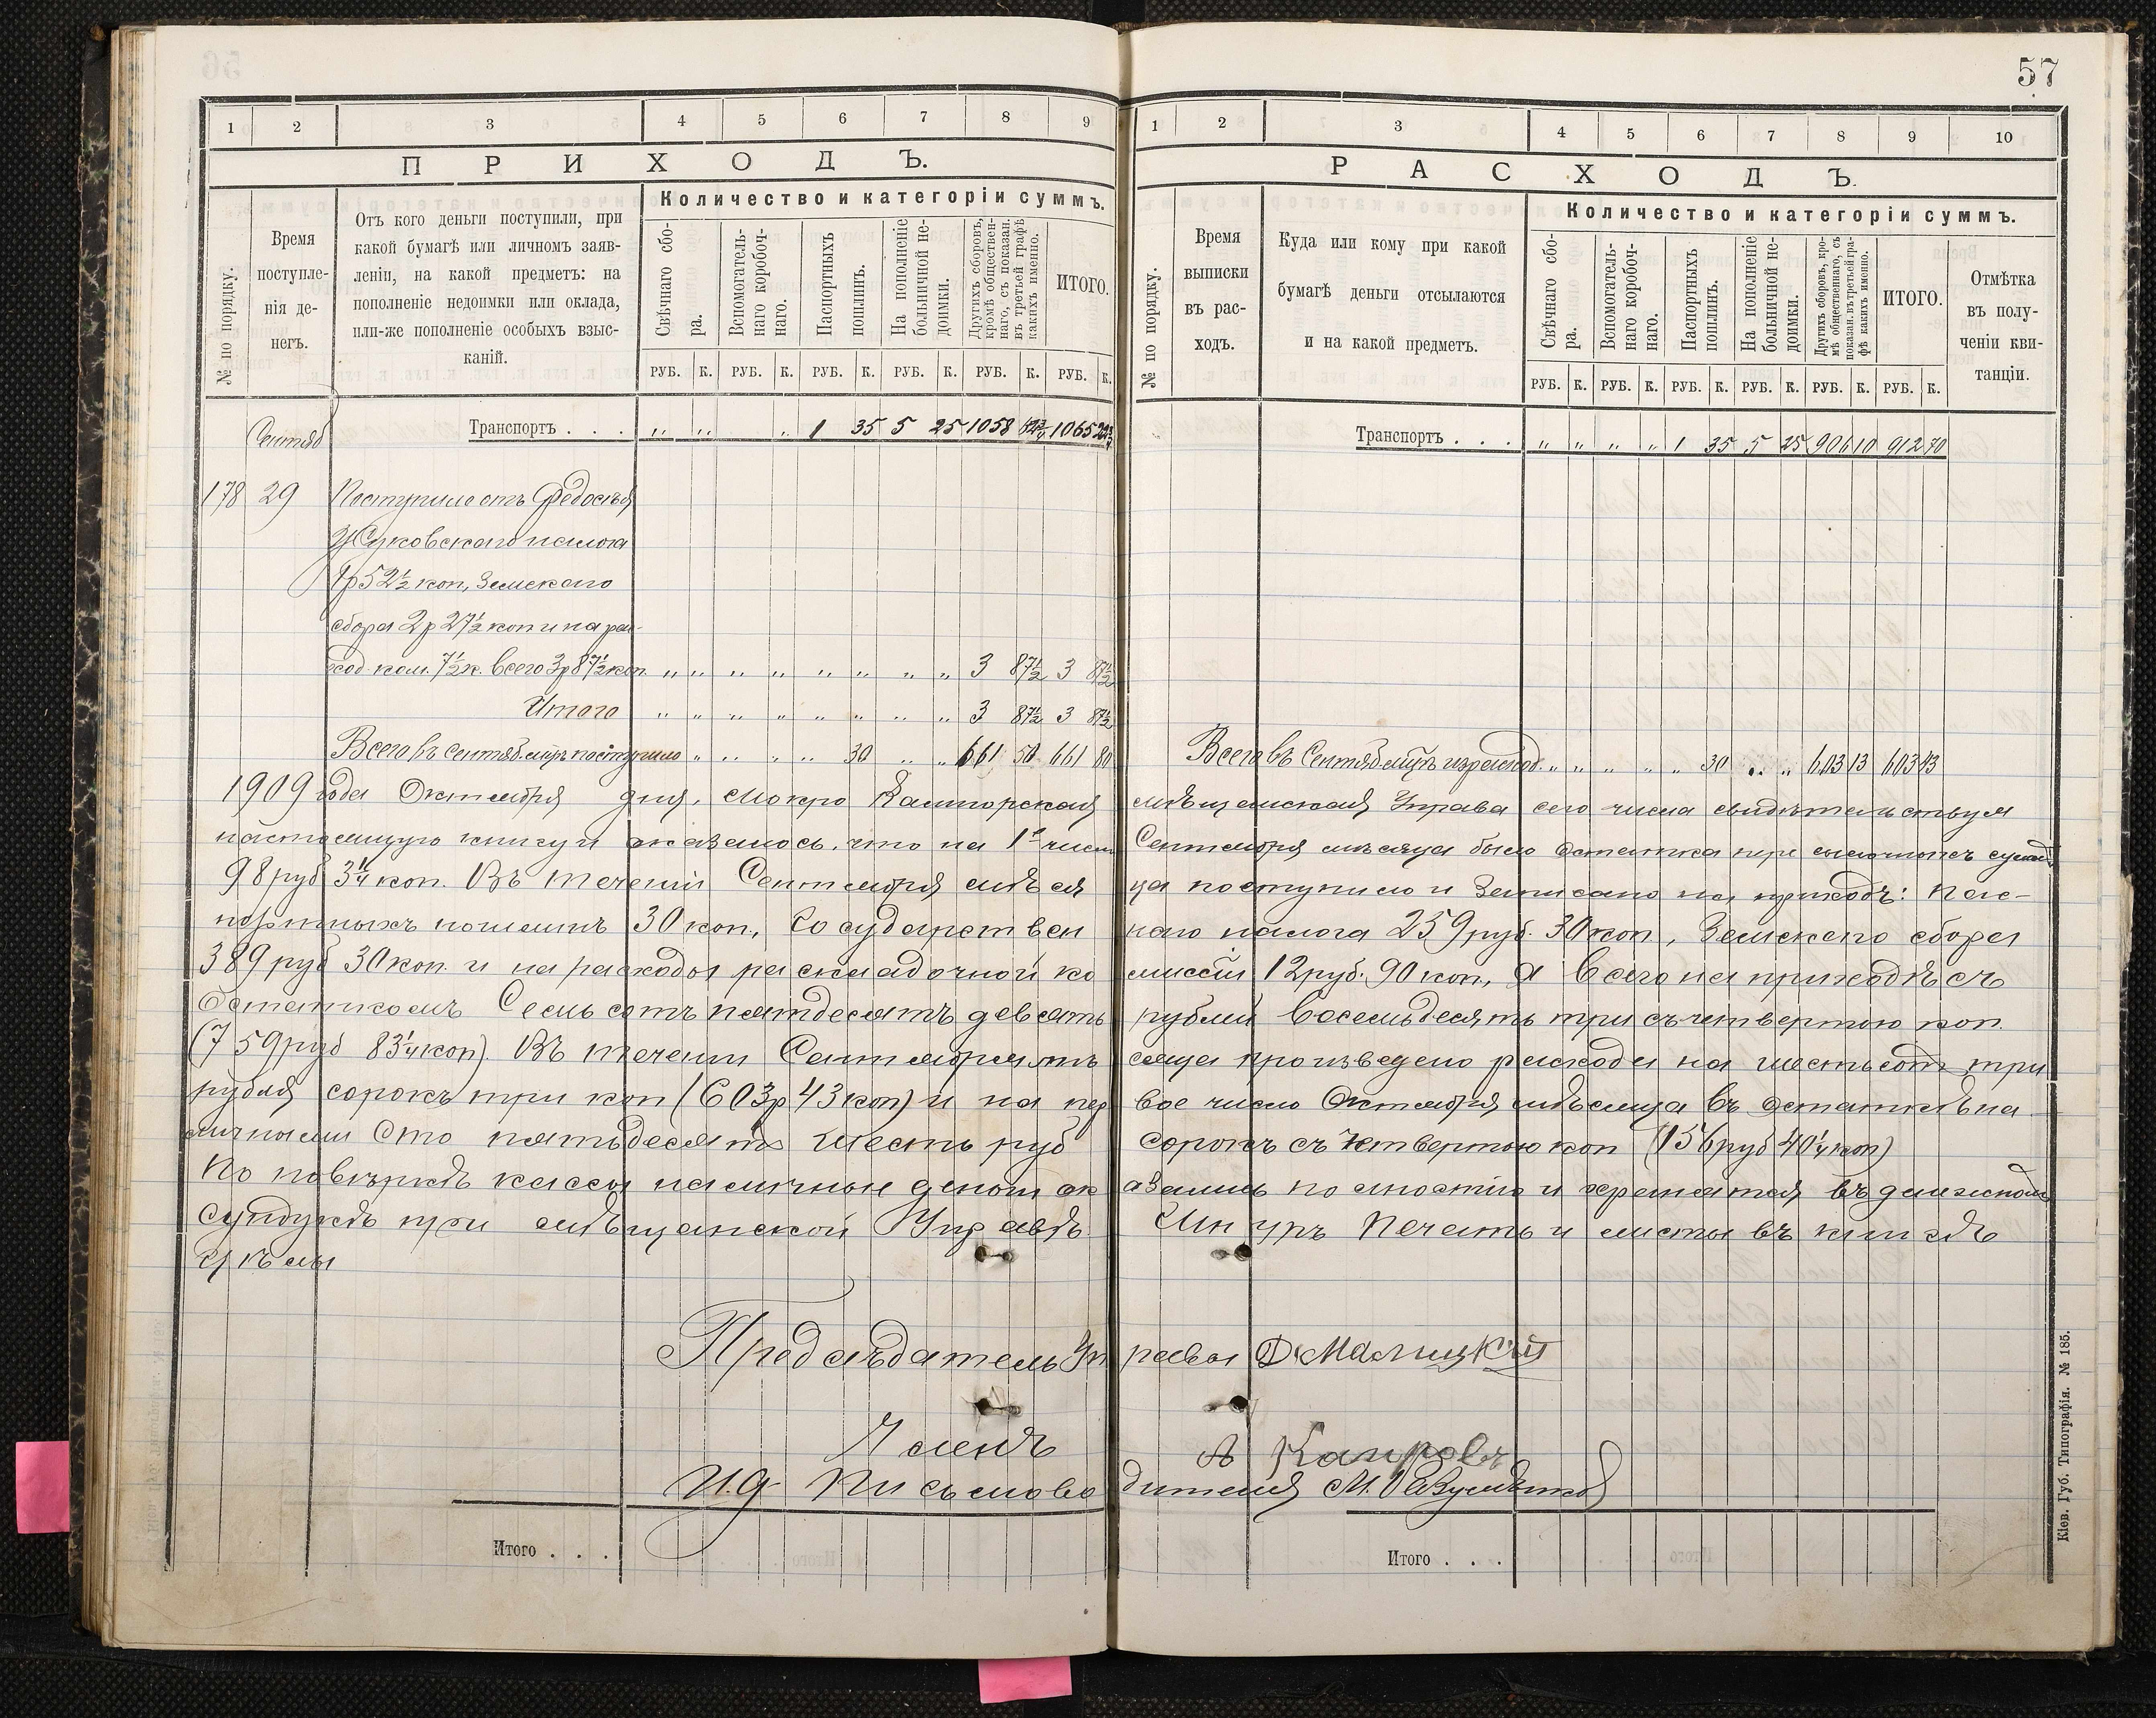 57
1 2 3 4 5 6 7 8 9
ПРИХОДЪ.
№ по порядку.
Время поступле-
нія де-
негъ.
Отъ кого деньги поступили, при
какой бумагѣ или личномъ заяв-
леніи, на какой предметъ: на
пополненіе недоимки или оклада,
или-же пополненіе особыхъ взыс-
каній.
Количество и категоріи суммъ.
Свѣчнаго сбо-
ра.
Вспомогатель-
наго коробоч-
наго.
Паспортныхъ
пошлинъ.
На пополненіе
больничной не-
доимки.
Другихъ сборовъ,
кромѣ обществен-
наго, съ показан.
въ третьей графѣ
какихъ именно.
ИТОГО.
РУБ. К. РУБ. К. РУБ. К. РУБ. К. РУБ. К. РУБ. К.
Сентяб Транспортъ . . . „ „ „ 1 35 5 25 1058 62¾ 1065 22¾
178 29 Поступило отъ Федосѣя
Жуковскаго налога
1р 52½ коп, Земскаго
сбора 2р 27½ коп и на рас-
ход. ком. 7½к. всего 3р 87½ коп. „ „ „ „ „ „ „ „ 3 87½ 3 87½
Итого „ „ „ „ „ „ „ „ 3 87½ 3 87½
Всего въ Сентяб. м-цѣ поступило „ „ „ „ 30 „ „ 661 50 661 80
1 2 3 4 5 6 7 8 9 10
РАСХОДЪ.
№ по порядку.
Время
выписки
въ рас-
ходъ.
Куда или кому при какой
бумагѣ деньги отсылаются
и на какой предметъ.
Количество и категоріи суммъ.
Свѣчнаго сбо-
ра.
Вспомогатель-
наго коробоч-
наго.
Паспортныхъ
пошлинъ.
На пополненіе
больничной не-
доимки.
Другихъ сборовъ, кро-
мѣ общественнаго, съ
показан. въ третьей гра-
фѣ какихъ именно.
ИТОГО.
Отмѣтка
въ полу-
ченіи кви-
танціи.
РУБ. К. РУБ. К. РУБ. К. РУБ. К. РУБ. К. РУБ. К.
Транспортъ . . . „ „ „ „ 1 35 5 25 906 10 912 70
Всего въ Сентяб. м-цѣ израсход. „ „ „ „ „ 30 „ „ 603 13 603 43
1909 года Октября дня, Мокро Калигорская мѣщанская Управа сего числа свидѣтельствуя
настоящую книгу и оказалось, что на 1е число Сентября мѣсяца было остатка суммъ
98 руб 3¼ коп. Въ теченіи Сентября мѣся ца поступило и Записано на приходъ: пас-
портныхъ пошлинъ 30 коп, Государствен наго налога 259 руб. 30 коп, Земскаго сбора
389 руб 30 коп. и на расходы раскладочной ко миссіи 12 руб. 90 коп, а всего на приходѣ съ
Остаткомъ Семьсотъ пятдесятъ девять рублей восемьдесять три съ четвертою коп.
(759 руб 83¼ коп). Въ теченіи Сентября мѣ сяца произведено расхода на шестьсот три
рубля сорокъ три коп (603р 43 коп) и на пер вое число Октября мѣсяца въ остаткѣ на
личными Сто пятьдесятъ шесть руб сорокъ съ четвертою коп (156 руб 40¼ коп)
По повѣркѣ кассы наличныя деньги ок азались полностію и хранятся въ денежномъ
сундукѣ при мѣщанской Управѣ. Шнуръ Печать и листы въ книгѣ
цѣлы
Предсѣдатель Уп равы Малицкій
Членъ А Капровъ
И.д. Письмово дителя М.
Итого . . . Итого . . .
Кіев. Губ. Типографія. № 185.